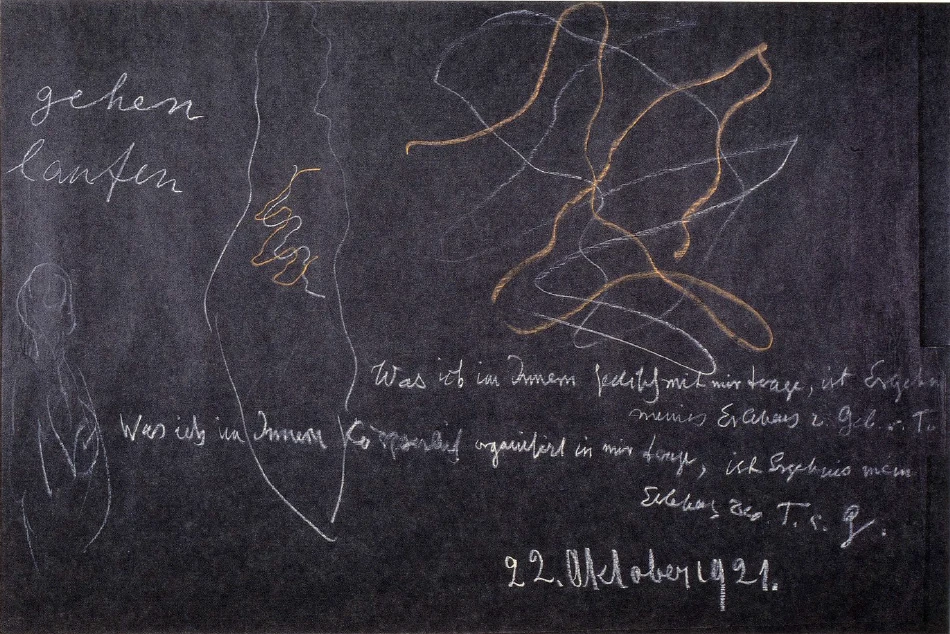 gehen
laufen
Was ich im Innern seelisch mit mir trage, ist Ergebn
meines Erlebens z. Geb. u. T.
Was ich im Innern organisiert in mir trage, ist Ergebnis mein
Erlebens zw. T. u. G.
22. Oktober 1921.